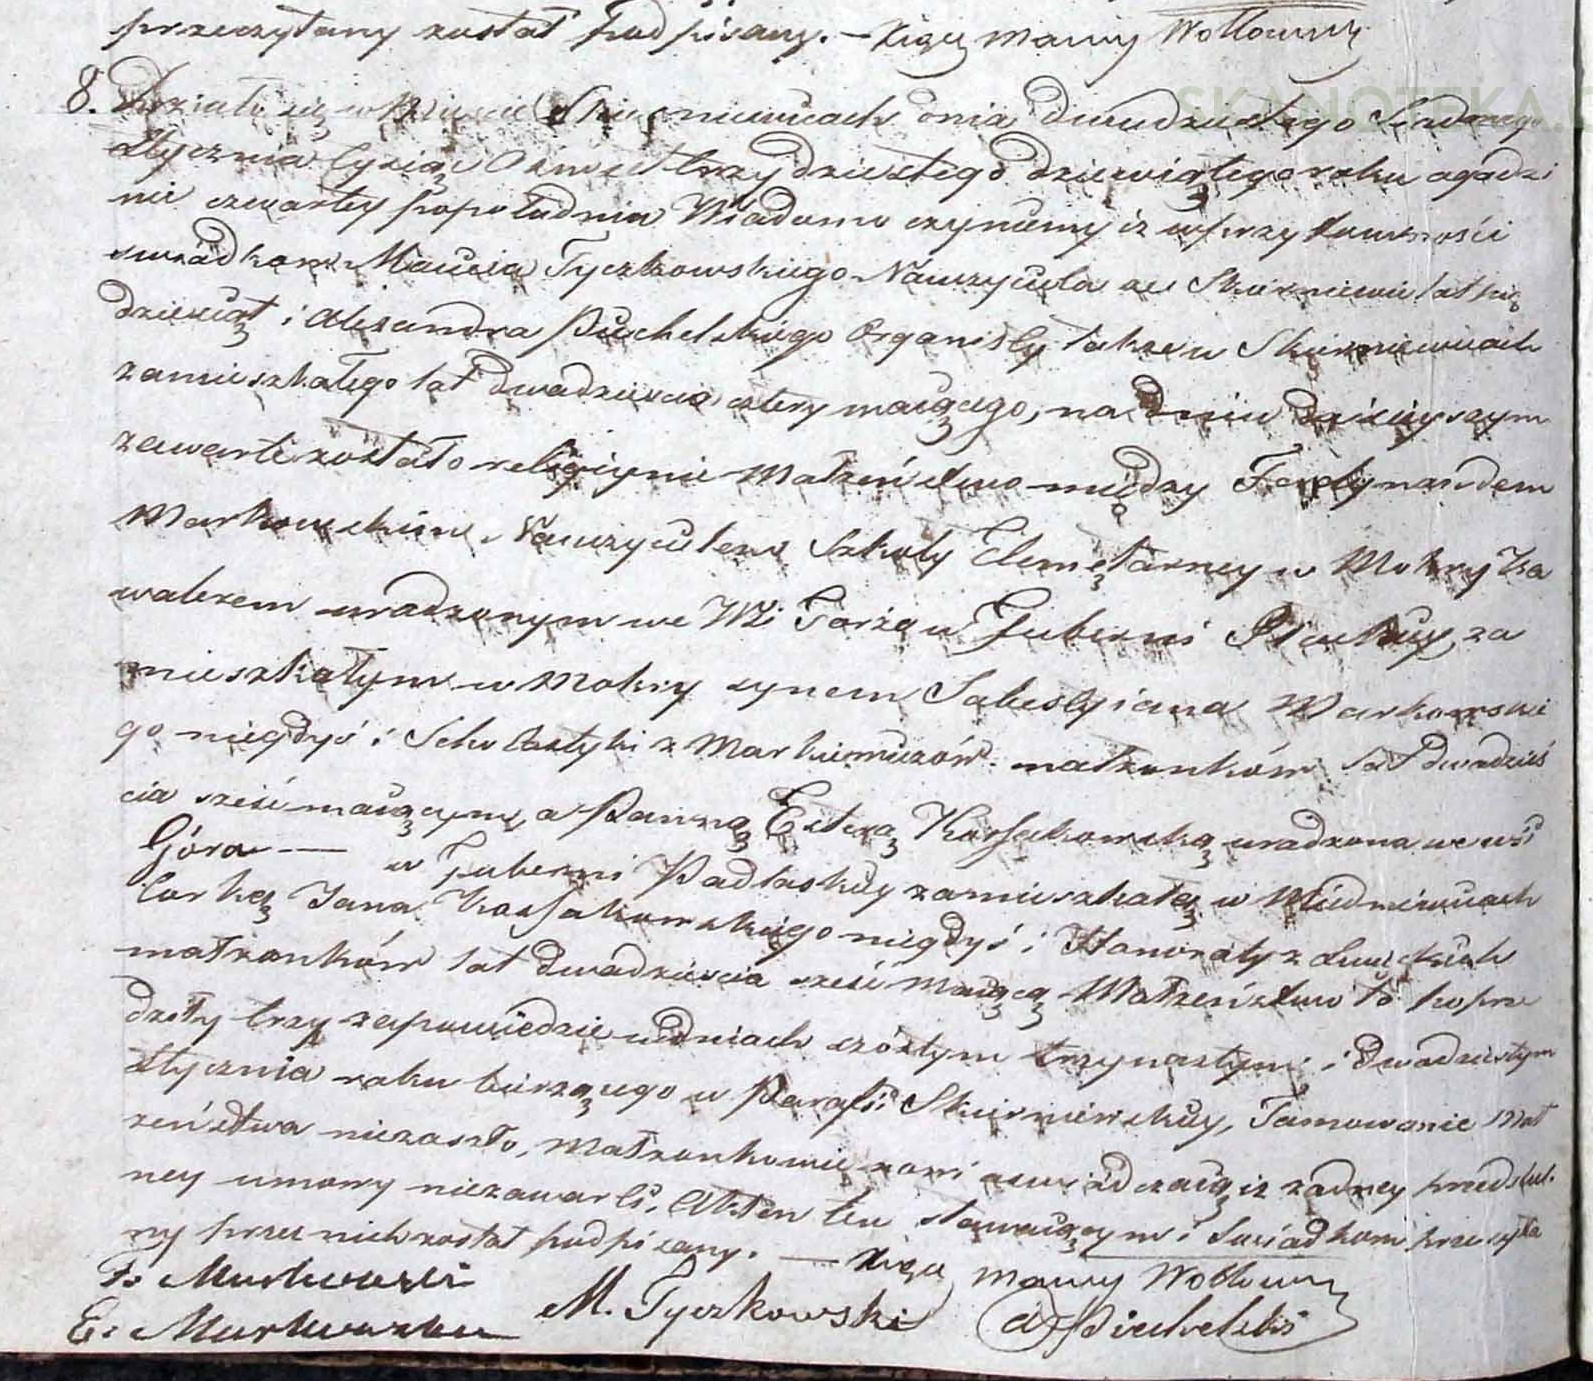 przeczytany został podpisany. — Xiądz
8. Działo się w Mieście Skierniewicach dnia dwudziestego Siodmego
Stycznia Tysiąc Osmset trzydziestego dziewiątego roku ogodzi
nie czwartey popołudniu Wiadomo czynimy iż wprzytomności
swiadkow Macieia Tyczkowskiego Nauczyciela ze Skierniewic lat
dziesiąt i Alexandra Piechelskiego Organisty także w Skierniewicach
zamieszkałego lat dwadzieścia cztery maiącego, na dniu dzisieyszym
zawarte zostało religiyne Małżeństwo między Ferdynandem
Markowskim Nauczycielem Szkoły Elemętarney w Mokry Ka
walerem urodzonym we Wsi w Gubernii za
mieszkałym w Mokry synem Sabestyiana Markowskie
go niegdyś i Scholastyki z Markiewiczów małżonków lat dwadzieś
cia sześć maiącym, a Panną Esterą Kossakowską urodzona we wsi
Góra — w Gubernii Podlaskiey zamieszkałą w Miedniewicach
Corką Jana Kossakowskiego niegdyś i Honoraty z
małżonków lat dwadzieścia sześć maiącą Małżeństwo to poprze
dziły trzy zapowiedzie wdniach szóstym trzynastym i dwudziestym
Stycznia roku bieżącego w Parafii Skierniewskiey, Tamowanie Mał
żeństwa niezaszło, Małżonkowie nowi oswiadczaią iż żadney przedslub.
ney umowy niezawarli. Akt ten stawaiącym i Swiadkom przeczyta
ny przez nich został podpisany. — Xiądz
F. Markowski
E. Markowska M. Tyczkowski A Piechelski